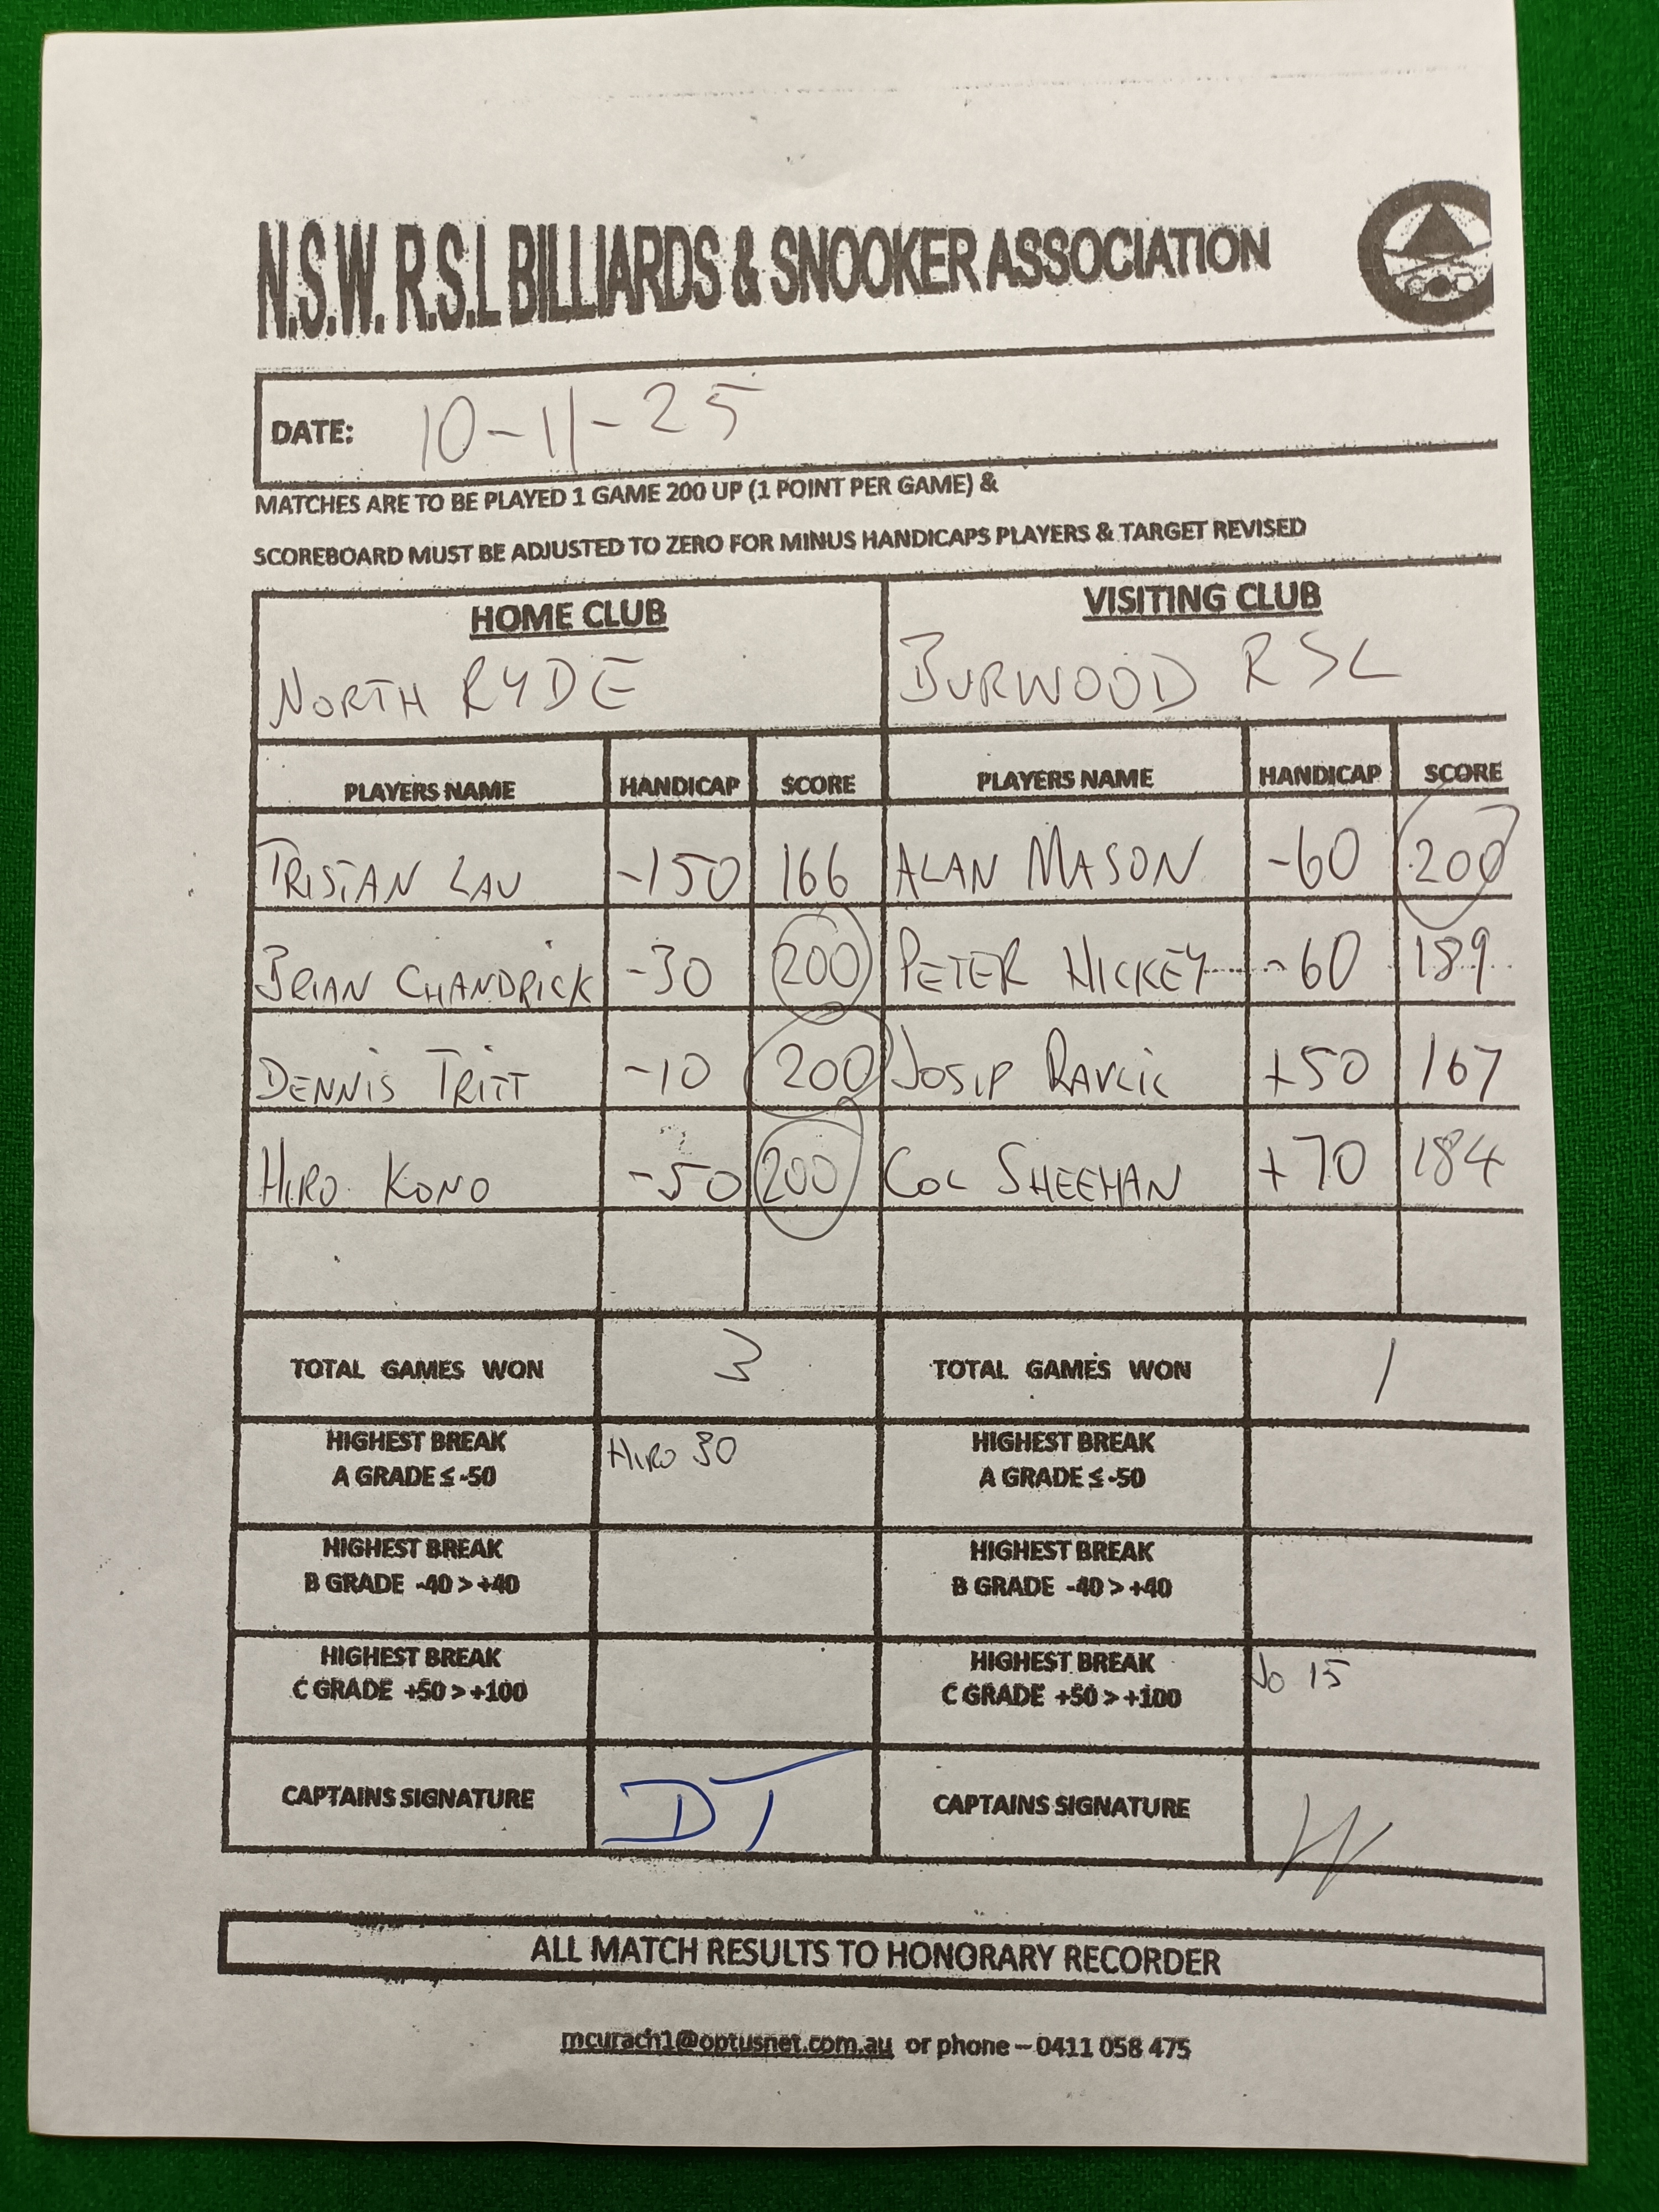 N.S.W. R.S.L BILLIARDS & SNOOKER ASSOCIATION
DATE: 10-11-25
MATCHES ARE TO BE PLAYED 1 GAME 200 UP (1 POINT PER GAME) &
SCOREBOARD MUST BE ADJUSTED TO ZERO FOR MINUS HANDICAPS PLAYERS & TARGET REVISED
HOME CLUB VISITING CLUB
NORTH RYDE BURWOOD RSL
PLAYERS NAME HANDICAP SCORE PLAYERS NAME HANDICAP SCORE
TRISTAN LAU -150 166 ALAN MASON -60 200
BRIAN CHANDRICK -30 200 PETER HICKEY -60 189
DENNIS TRITT -10 200 JOSIP +50 167
HIRO KONO -50 200 COL SHEEHAN +70 184
TOTAL GAMES WON 3 TOTAL GAMES WON 1
HIGHEST BREAK HIRO 30 HIGHEST BREAK
A GRADE ≤ -50 A GRADE ≤ -50
HIGHEST BREAK HIGHEST BREAK
B GRADE -40 > +40 B GRADE -40 > +40
HIGHEST BREAK HIGHEST BREAK Jo 15
C GRADE +50 > +100 C GRADE +50 > +100
CAPTAINS SIGNATURE DT CAPTAINS SIGNATURE
ALL MATCH RESULTS TO HONORARY RECORDER
mcurach1@optusnet.com.au or phone – 0411 058 475